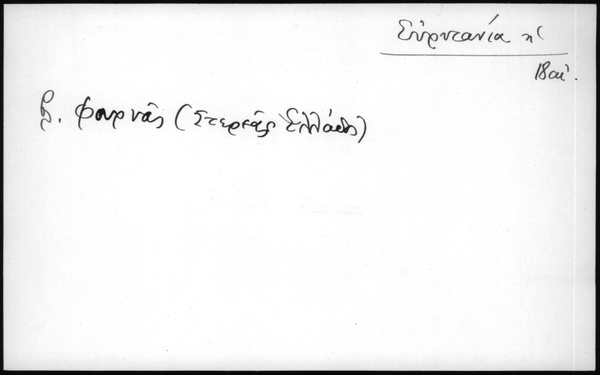 Εὐρυτανία η'
18 αἰ.
β. Φουρνᾶς (Στερεᾶς Ἑλλάδος)